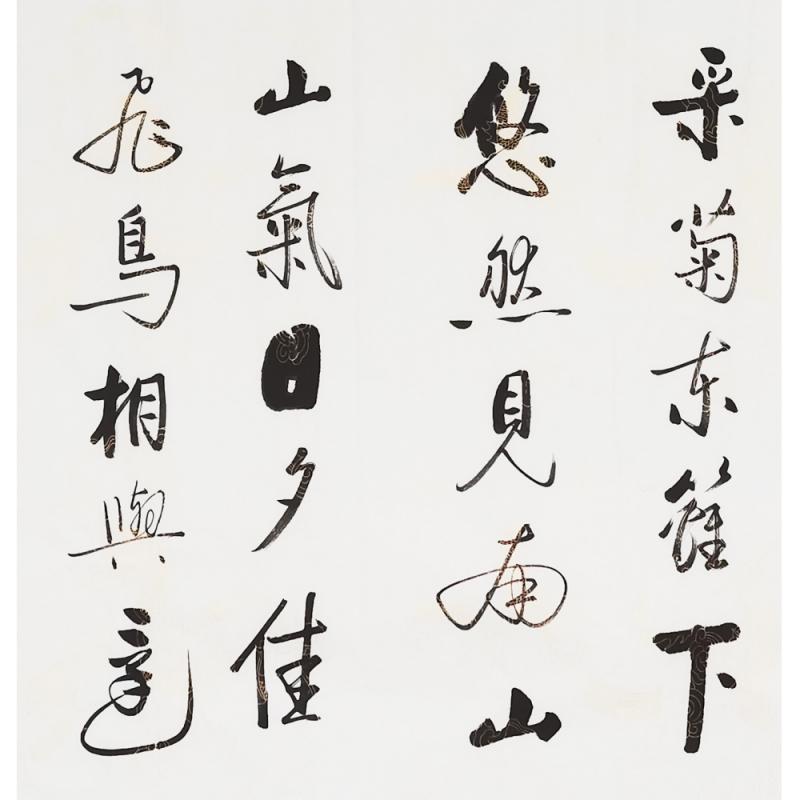 采菊东籬下
悠然見南山
山氣日夕佳
飛鳥相與還